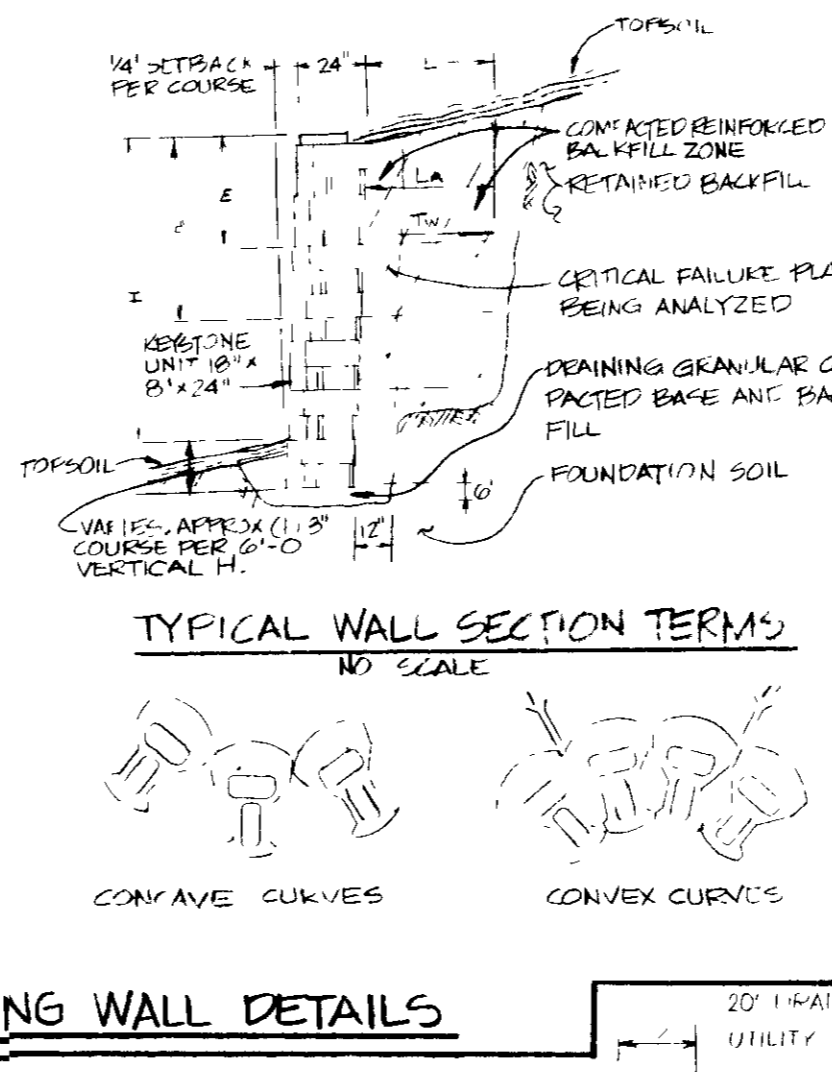 TOPSOIL
1/4" SETBACK
PER COURSE
24"
L
COMPACTED REINFORCED
BACKFILL ZONE
RETAINED BACKFILL
E
La
Tw
H
CRITICAL FAILURE PLA
BEING ANALYZED
KEYSTONE
UNIT 18" x
8" x 24"
DRAINING GRANULAR C
PACTED BASE AND BA
FILL
TOPSOIL
FOUNDATION SOIL
6"
12"
VARIES, APPROX (1) 3"
COURSE PER 6'-0
VERTICAL H.
TYPICAL WALL SECTION TERMS
NO SCALE
CONCAVE CURVES
CONVEX CURVES
NG WALL DETAILS
20' DRAI
UTILITY